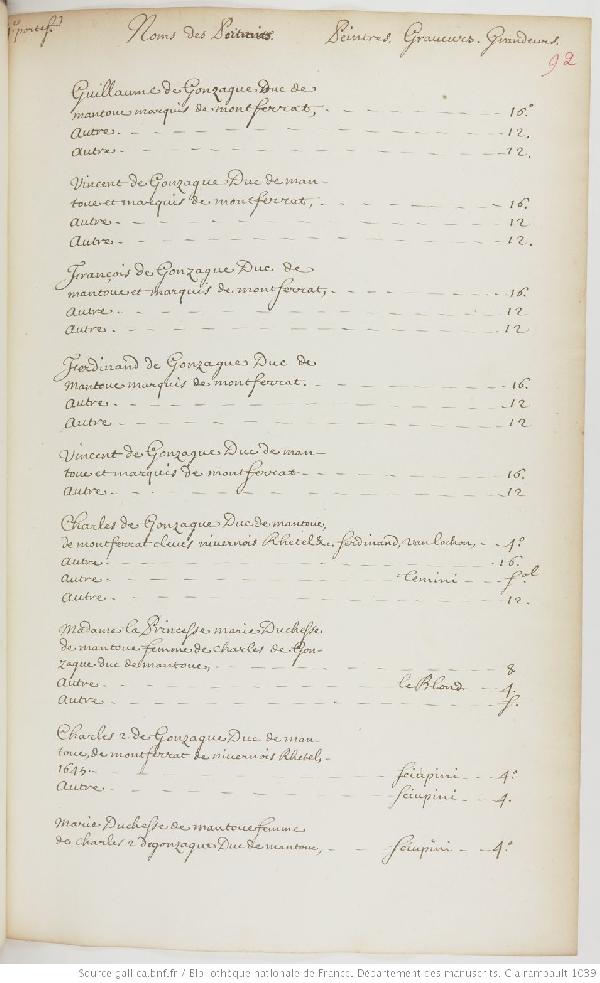 1er portef.
Noms des Portraits. Peintres. Graveurs. Grandeurs.
92
Guillaume de Gonzague Duc de
mantoue marquis de montferrat, 16.o
Autre. 12.
Autre. 12.
Vincent de Gonzague Duc de man-
toue et marquis de montferrat, 16.
Autre. 12
Autre. 12.
François de Gonzague Duc de
mantoue et marquis de montferrat, 16.
Autre. 12
Autre. 12
Ferdinand de Gonzague Duc de
Mantoue marquis de montferrat. 16.
Autre. 12
Autre. 12
Vincent de Gonzague Duc de man-
toue et marquis de montferrat 16.
Autre. 12
Charles de Gonzague Duc de mantoue,
de montferrat cleves nivernois Rhetel &c, ferdinand, Van lochon, 4.o
Autre. 16.
Autre. fol
Autre. 12.
Madame la Princesse marie Duchesse
de mantoue femme de Charles de Gon-
zague duc de mantoue, 8
Autre. le Blond. 4.
Autre. f.
Charles 2. de Gonzague Duc de man-
toue, de montferrat de nivernois Rhetel,
1645. Sciupini 4.o
Autre. Sciupini 4.
Marie Duchesse de mantoue femme
de Charles 2 de gonzague Duc de mantoue, Sciupini 4.o
Source gallica.bnf.fr / Bibliothèque nationale de France. Département des manuscrits. Clairambault 1039